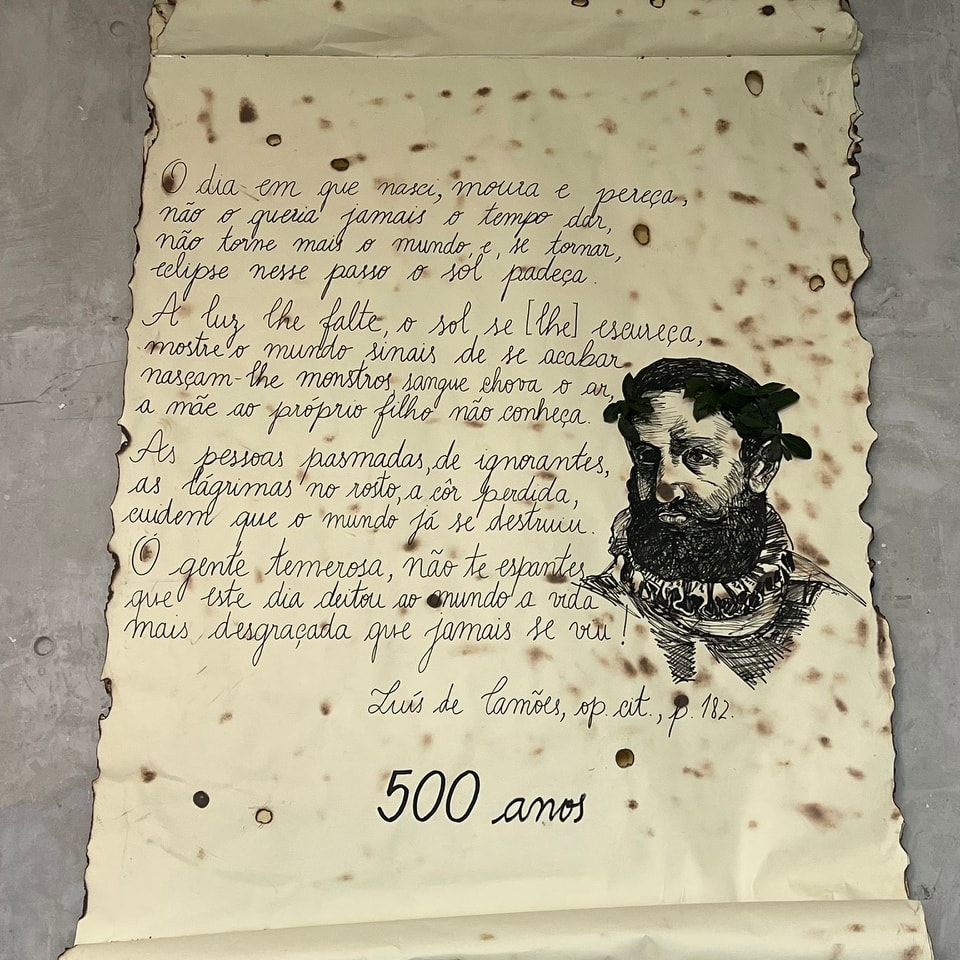 O dia em que nasci, moura e pereça,
não o queria jamais o tempo dar,
não torne mais o mundo, e, se tornar,
eclipse nesse passo o sol padeça.
A luz lhe falte, o sol se [lhe] escureça,
mostre o mundo sinais de se acabar
nasçam-lhe monstros, sangue chova o ar,
a mãe ao próprio filho não conheça.
As pessoas pasmadas, de ignorantes,
as lágrimas no rosto, a côr perdida,
cuidem que o mundo já se destruiu.
Ó gente temerosa, não te espantes,
que este dia deitou ao mundo a vida
mais desgraçada que jamais se viu!
Luís de Camões, op. cit., p. 182.
500 anos